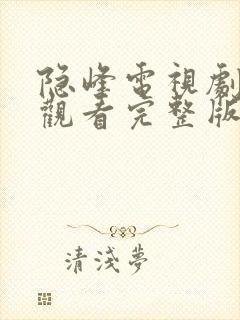 隐峰電視劇
觀看完整版
清淺夢